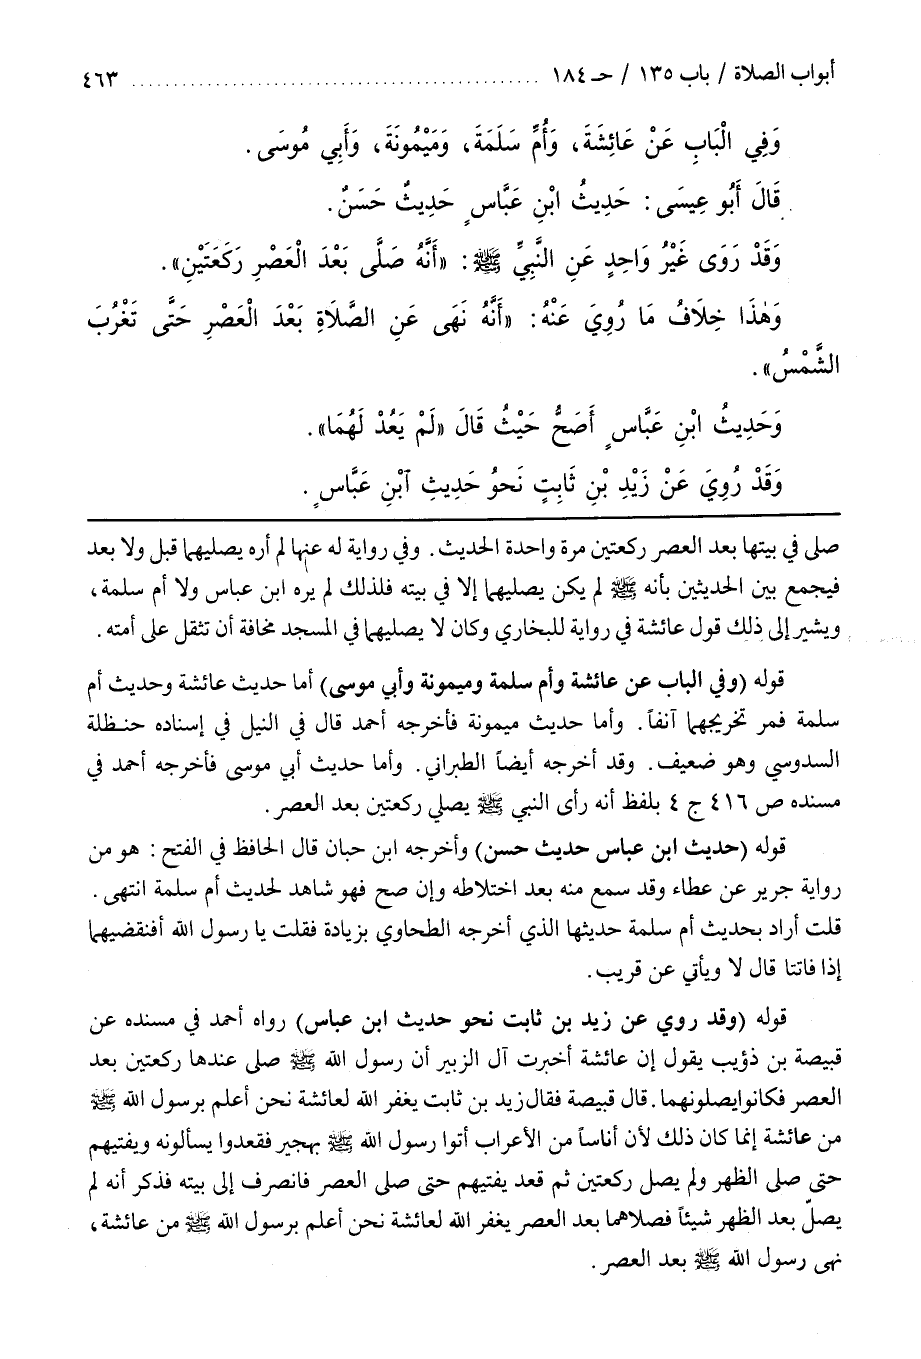 أبواب الصلاة / باب ١٣٥ / حـ ١٨٤ ................................................ ٤٦٣
وَفِي الْبَابِ عَنْ عَائِشَةَ، وَأُمِّ سَلَمَةَ، وَمَيْمُونَةَ، وَأَبِي مُوسَى.
قَالَ أَبُو عِيسَى: حَدِيثُ ابْنِ عَبَّاسٍ حَدِيثٌ حَسَنٌ.
وَقَدْ رَوَى غَيْرُ وَاحِدٍ عَنِ النَّبِيِّ ﷺ: «أَنَّهُ صَلَّى بَعْدَ الْعَصْرِ رَكَعَتَيْنِ».
وَهٰذَا خِلَافُ مَا رُوِيَ عَنْهُ: «أَنَّهُ نَهَى عَنِ الصَّلَاةِ بَعْدَ الْعَصْرِ حَتَّى تَغْرُبَ
الشَّمْسُ».
وَحَدِيثُ ابْنِ عَبَّاسٍ أَصَحُّ حَيْثُ قَالَ «لَمْ يَعُدْ لَهُمَا».
وَقَدْ رُوِيَ عَنْ زَيْدِ بْنِ ثَابِتٍ نَحوُ حَدِيثِ ٱبْنِ عَبَّاسٍ.
صلى في بيتها بعد العصر ركعتين مرة واحدة الحديث. وفي رواية له عنها لم أره يصليهما قبل ولا بعد
فيجمع بين الحديثين بأنه ﷺ لم يكن يصليهما إلا في بيته فلذلك لم يره ابن عباس ولا أم سلمة،
ويشير إلى ذلك قول عائشة في رواية للبخاري وكان لا يصليهما في المسجد مخافة أن تثقل على أمته.
قوله (وفي الباب عن عائشة وأم سلمة وميمونة وأبي موسى) أما حديث عائشة وحديث أم
سلمة فمر تخريجهما آنفاً. وأما حديث ميمونة فأخرجه أحمد قال في النيل في إسناده حنظلة
السدوسي وهو ضعيف. وقد أخرجه أيضاً الطبراني. وأما حديث أبي موسى فأخرجه أحمد في
مسنده ص ٤١٦ ج ٤ بلفظ أنه رأى النبي ﷺ يصلي ركعتين بعد العصر.
قوله (حديث ابن عباس حديث حسن) وأخرجه ابن حبان قال الحافظ في الفتح: هو من
رواية جرير عن عطاء وقد سمع منه بعد اختلاطه وإن صح فهو شاهد لحديث أم سلمة انتهى.
قلت أراد بحديث أم سلمة حديثها الذي أخرجه الطحاوي بزيادة فقلت يا رسول الله أفنقضيهما
إذا فاتتا قال لا ويأتي عن قريب.
قوله (وقد روي عن زيد بن ثابت نحو حديث ابن عباس) رواه أحمد في مسنده عن
قبيصة بن ذؤيب يقول إن عائشة أخبرت آل الزبير أن رسول الله ﷺ صلى عندها ركعتين بعد
العصر فكانوا يصلونهما. قال قبيصة فقال زيد بن ثابت يغفر الله لعائشة نحن أعلم برسول الله ﷺ
من عائشة إنما كان ذلك لأن أناساً من الأعراب أتوا رسول الله ﷺ بهجير فقعدوا يسألونه ويفتيهم
حتى صلى الظهر ولم يصل ركعتين ثم قعد يفتيهم حتى صلى العصر فانصرف إلى بيته فذكر أنه لم
يصلّ بعد الظهر شيئاً فصلاهما بعد العصر يغفر الله لعائشة نحن أعلم برسول الله ﷺ من عائشة،
نهى رسول الله ﷺ بعد العصر.